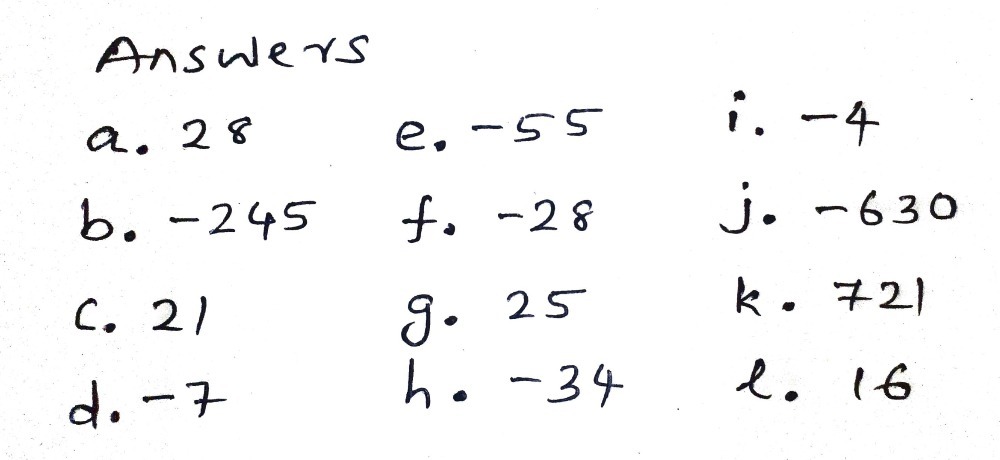 Answers
a. 28
b. -245
c. 21
d. -7
e. -55
f. -28
g. 25
h. -34
i. -4
j. -630
k. 721
l. 16